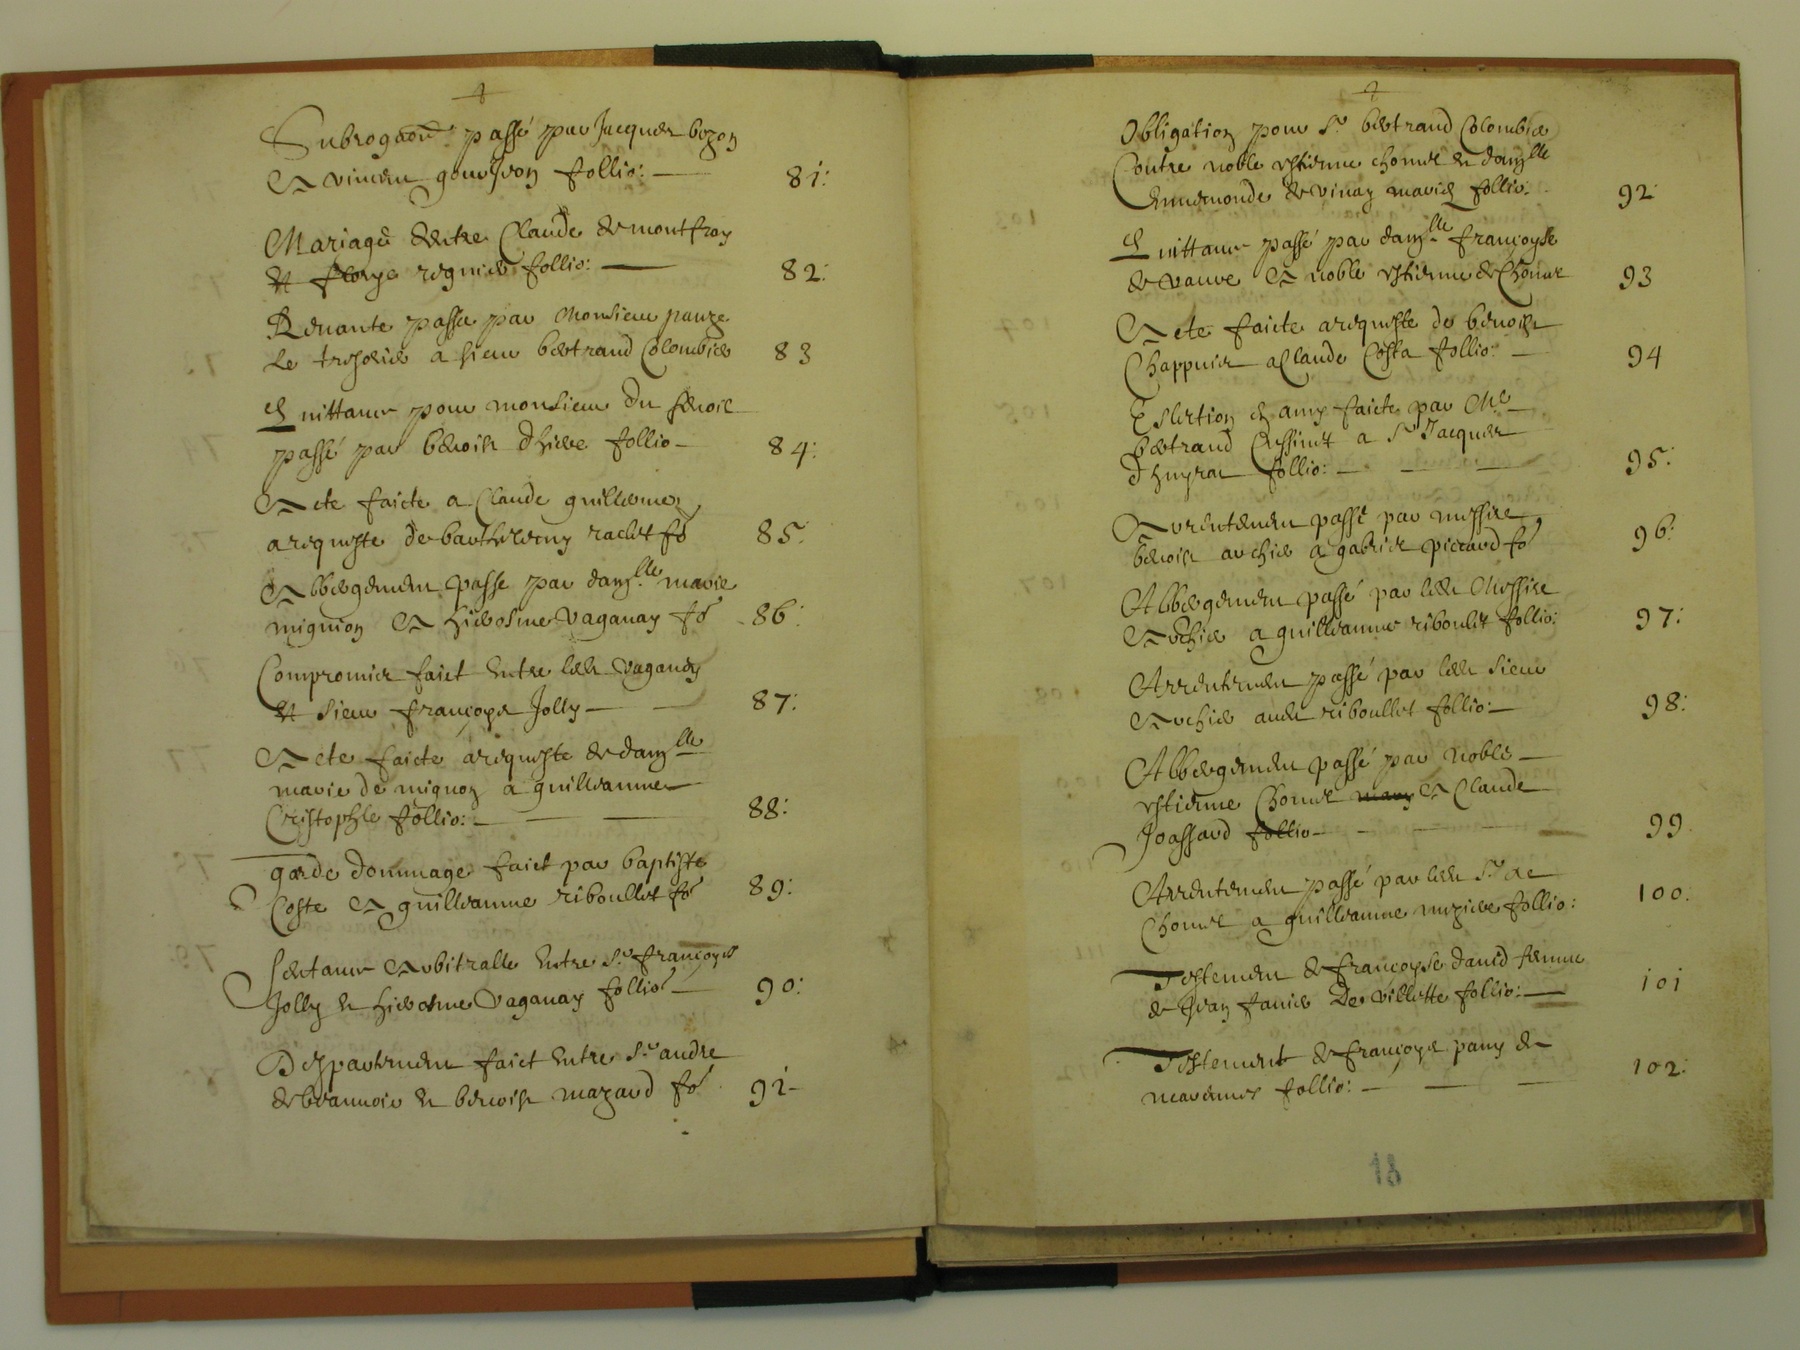 Subrogaõn passé par Jacques bozon
A vincen gourjon follio: 81:
Mariage dentre Claude de montfroy
et regnier follio: 82:
passee par Monsieur
Le tresorier a sieur bertrand Colombier 83
Quittance pour monsieur du
passé par benoist dhiere follio 84:
Acte faicte a Claude guillermen
arequeste de barthelemy raclet fo 85:
Abbergement passe par damlle marie
mignion A hierosme Vaganay fo 86:
Compromis faict Entre lesd Vaganay
et sieur françoys Jolly 87:
Acte faicte arequeste de damlle
marie de mignon a guilleaume
Cristophle follio: 88:
garde dommage faict par baptiste
Coste A guilleaume riboullet fo 89:
sentance Arbitralle Entre Sr françoys
Jolly et hierosme Vaganay follio 90:
Despartement faict Entre Sr andre
de et benoist mazard fo 91
Obligation pour Sr bertrand Colombier
Contre noble estienne chomel et damlle
Ennemonde de vinay maries follio: 92
Quittance passé par damlle françoyse
de vaure A noble estienne de Chomel 93
Acte faicte arequeste de benoist
Chappuis a Claude Costa follio: 94
Eslection et amy faicte par Me
bertrand a Sr Jacques
follio: 95:
Arrentement passé par messire
benoist archier a gabriel picard fo 96:
Abbergement passé par led Messire
Archier a guilleaume riboulet follio: 97:
Arrentement passé par led sieur
Archier aud riboullet follio: 98:
Abbergement passé par noble
estienne Chomel A Claude
Joassard follio 99
Arrentement passé par led Sr de
Chomel a guilleaume follio: 100:
Testement de françoyse david femme
de Jean Janier De villette follio: 101
Testement de françoys pany de
follio: 102:
18